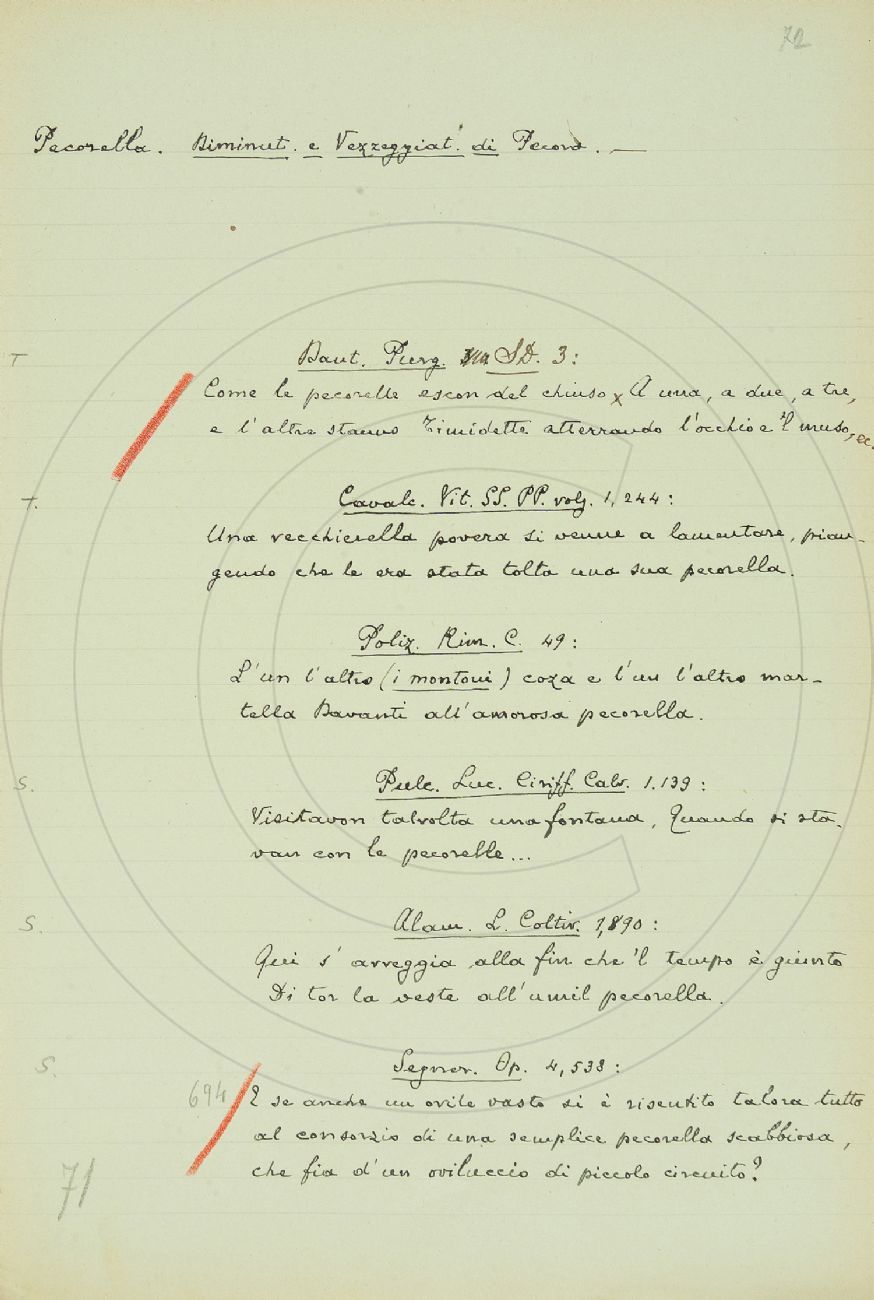 72
Pecorella. Diminut. e Vezzeggiat. di Pecora. —
T
Dant. Purg. SD. 3:
Come le pecorelle escon del chiuso x A una, a due, a tre,
e l'altre stanno Timidette atterrando l'occhio e 'l muso, ec.
T.
Cavalc. Vit. SS. PP. volg. 1, 244:
Una vecchierella povera si venne a lamentare, pian-
gendo che le era stata tolta una sua pecorella.
Poliz. Rim. C. 49:
L'un l'altro (i montoni) coza e l'un l'altro mar-
tella Davanti all'amorosa pecorella.
S.
Pulc. Luc. Ciriff. Calv. 1.139:
Visitavon talvolta una fontana, Quando si sta-
van con le pecorelle...
S.
Alam. L. Coltiv. 1,890:
Qui s'avveggia alla fin che 'l tempo è giunto
Di tor la veste all'umil pecorella.
S.
Segner. Op. 4,533:
694 E se anche un ovile vasto si è risentito talora tutto
al consorzio di una semplice pecorella scabbiosa,
che fia d'un oviluccio di piccolo circuito?
71